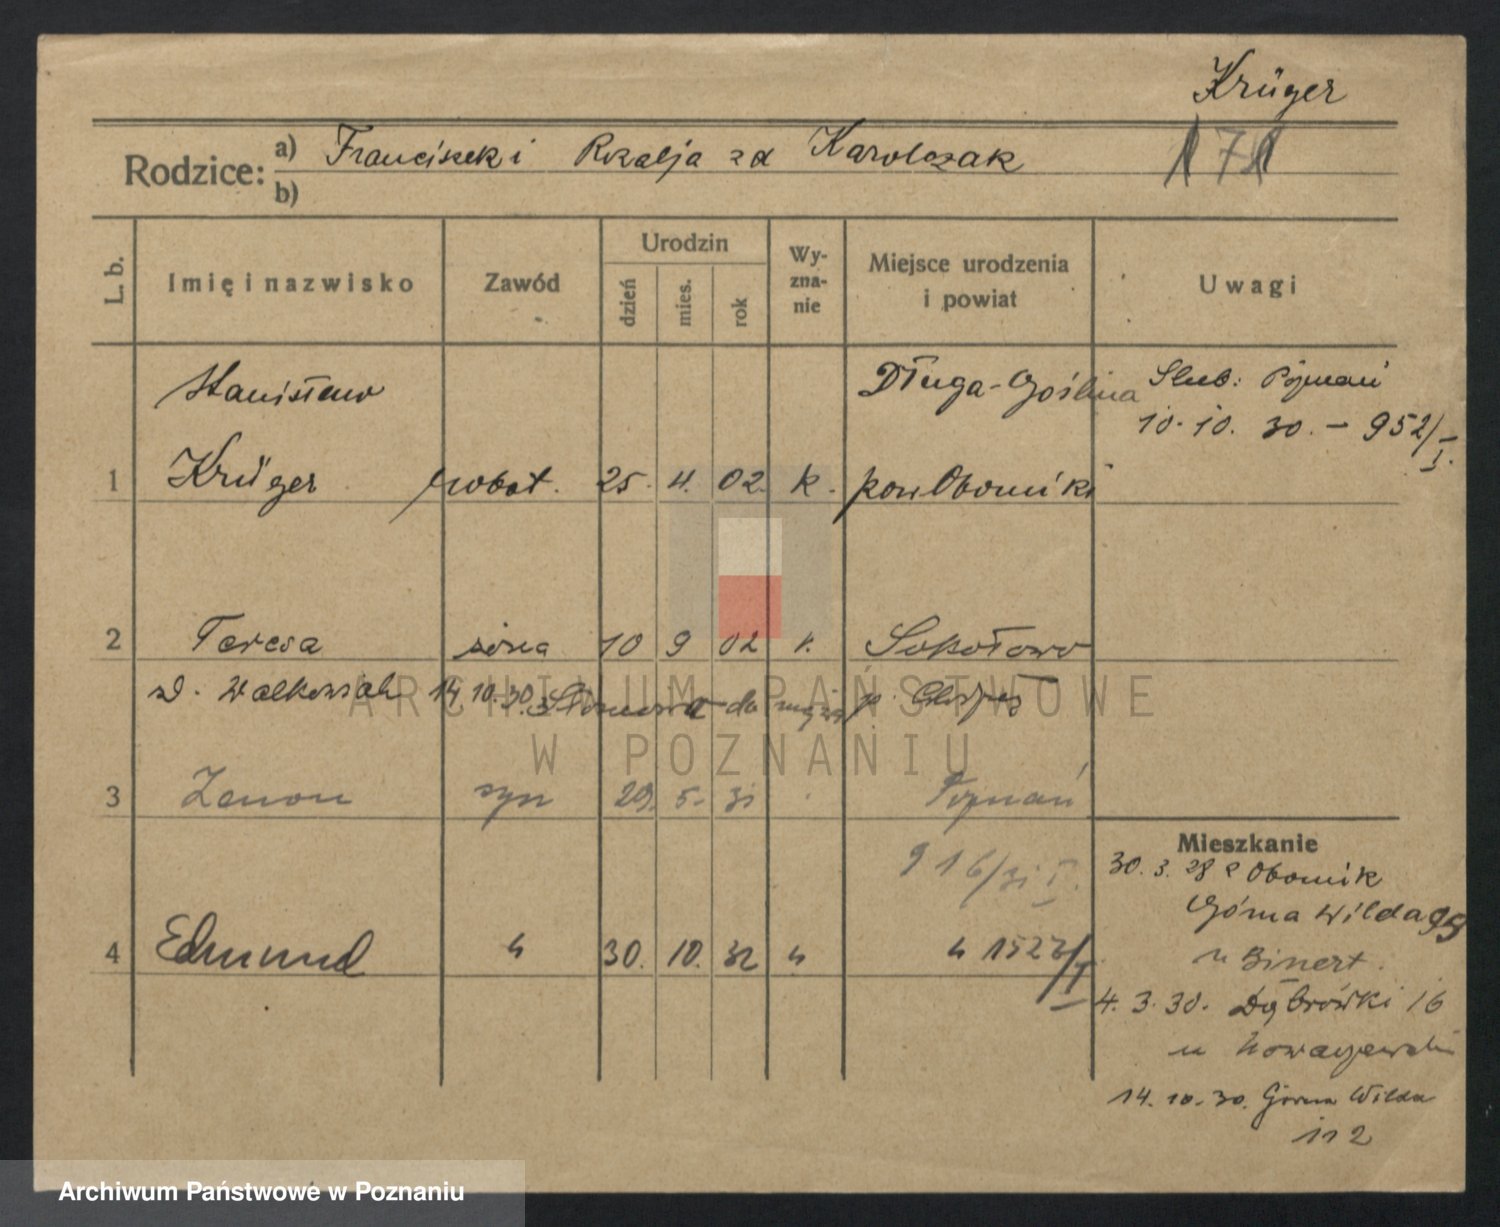 Krüger
Rodzice: a) Franciszek i Rozalja zd Karolczak
b)
171
L. b.
Imię i nazwisko
Zawód
Urodzin
dzień
mies.
rok
Wy-
zna-
nie
Miejsce urodzenia
i powiat
Uwagi
Stanisław
Długa-Goślina
Ślub: Poznań
10. 10. 30. – 952/I.
1 Krüger robot. 25. 4. 02. k. pow Oborniki
2 Teresa żona 10 9 02 k. Sokołowo
zd. Walkowiak 14.10.30. z do męża p.
3 Zenon syn 29. 5. 31 Poznań
916/31 I.
4 Edmund " 30. 10. 32 " " 1522/I
Mieszkanie
30. 3. 28 z Obornik
Górna Wilda 95
u Binert.
4. 3. 30. Dąbrówki 16
u
14. 10. 30. Górna Wilda
ARCHIWUM PAŃSTWOWE
W POZNANIU
Archiwum Państwowe w Poznaniu